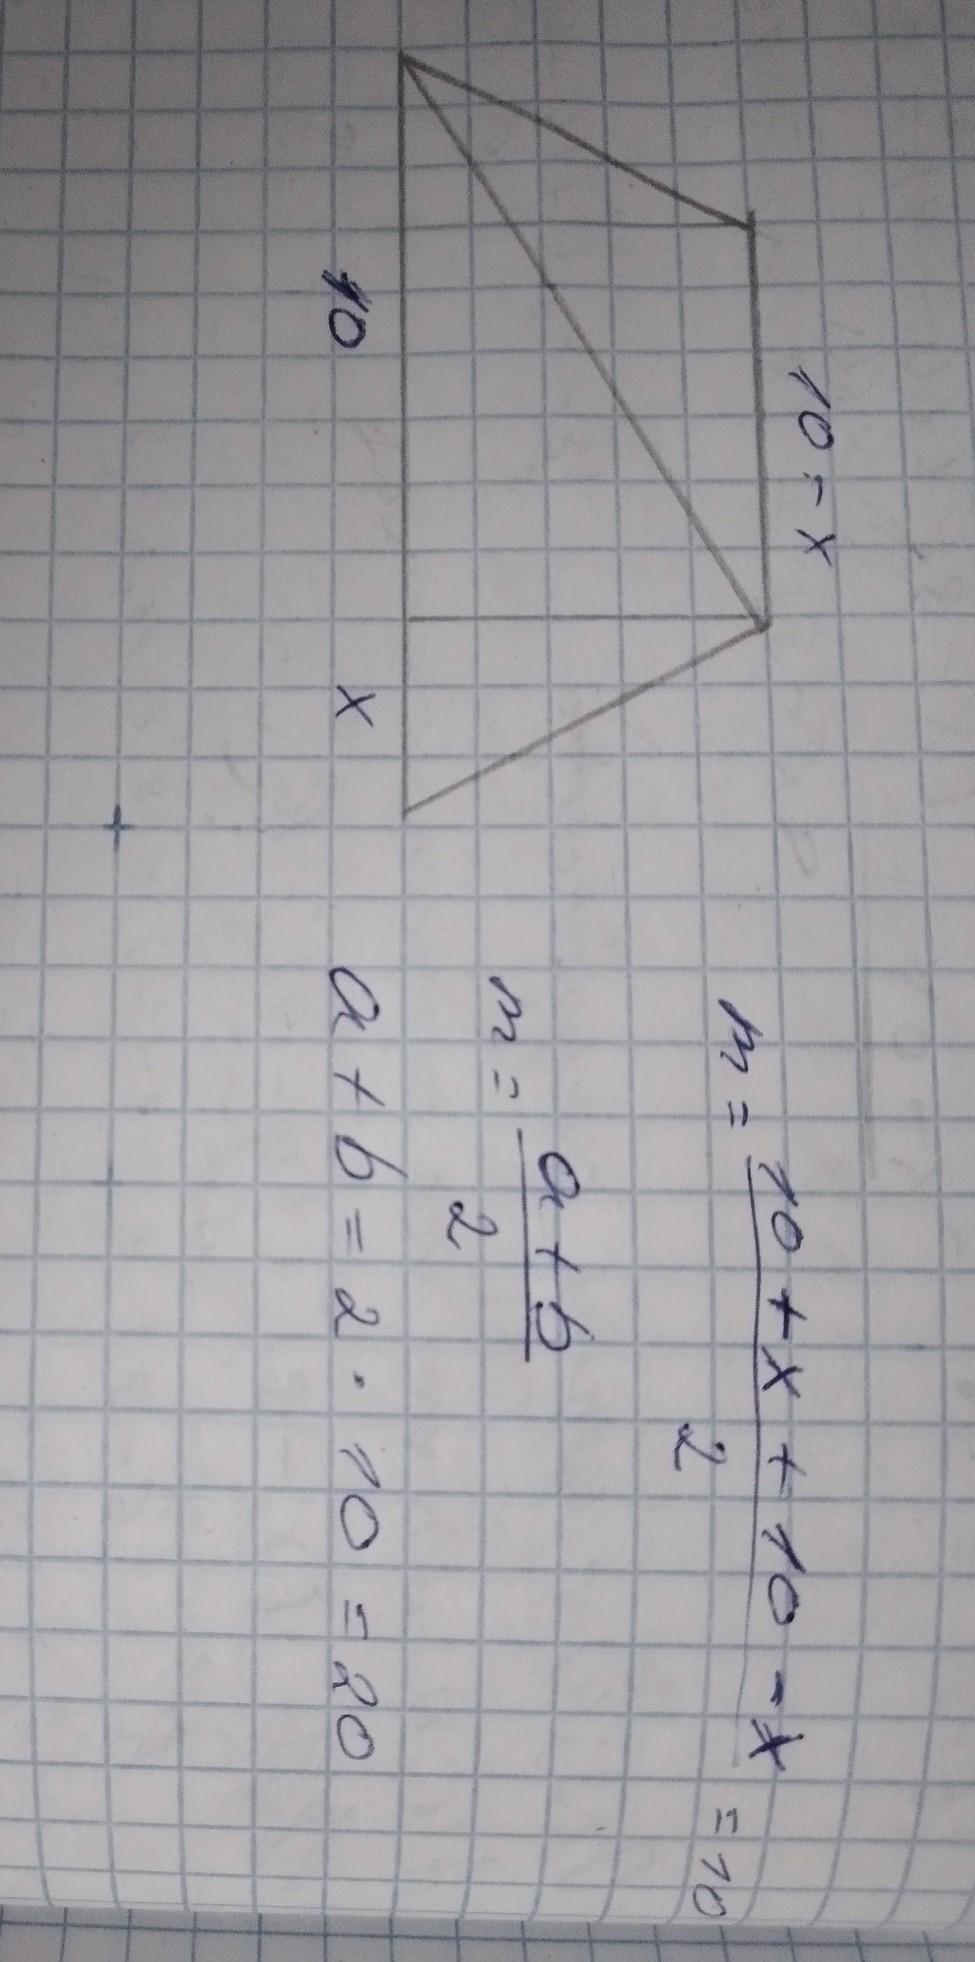 10 - x
10
x
m = \frac{10 + x + 10 - x}{2} = 10
m = \frac{a + b}{2}
a + b = 2 · 10 = 20